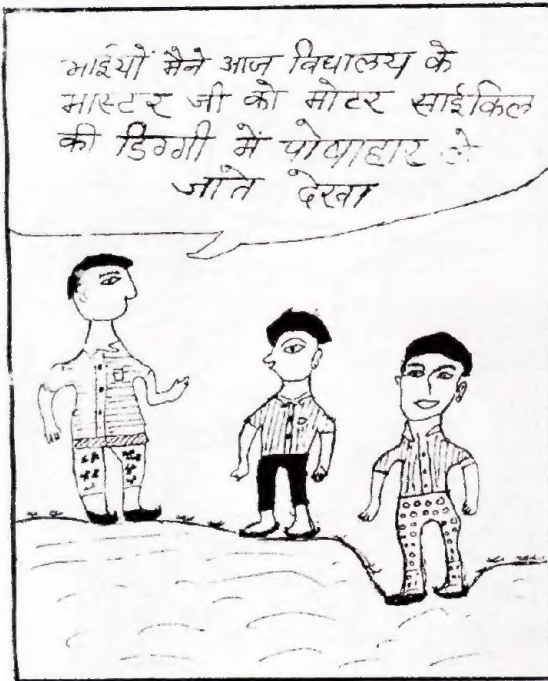 भाईयों मैने आज विधालय के
मास्टर जी को मोटर साईकिल
की डिग्गी में पोषाहार ले
जाते देखा